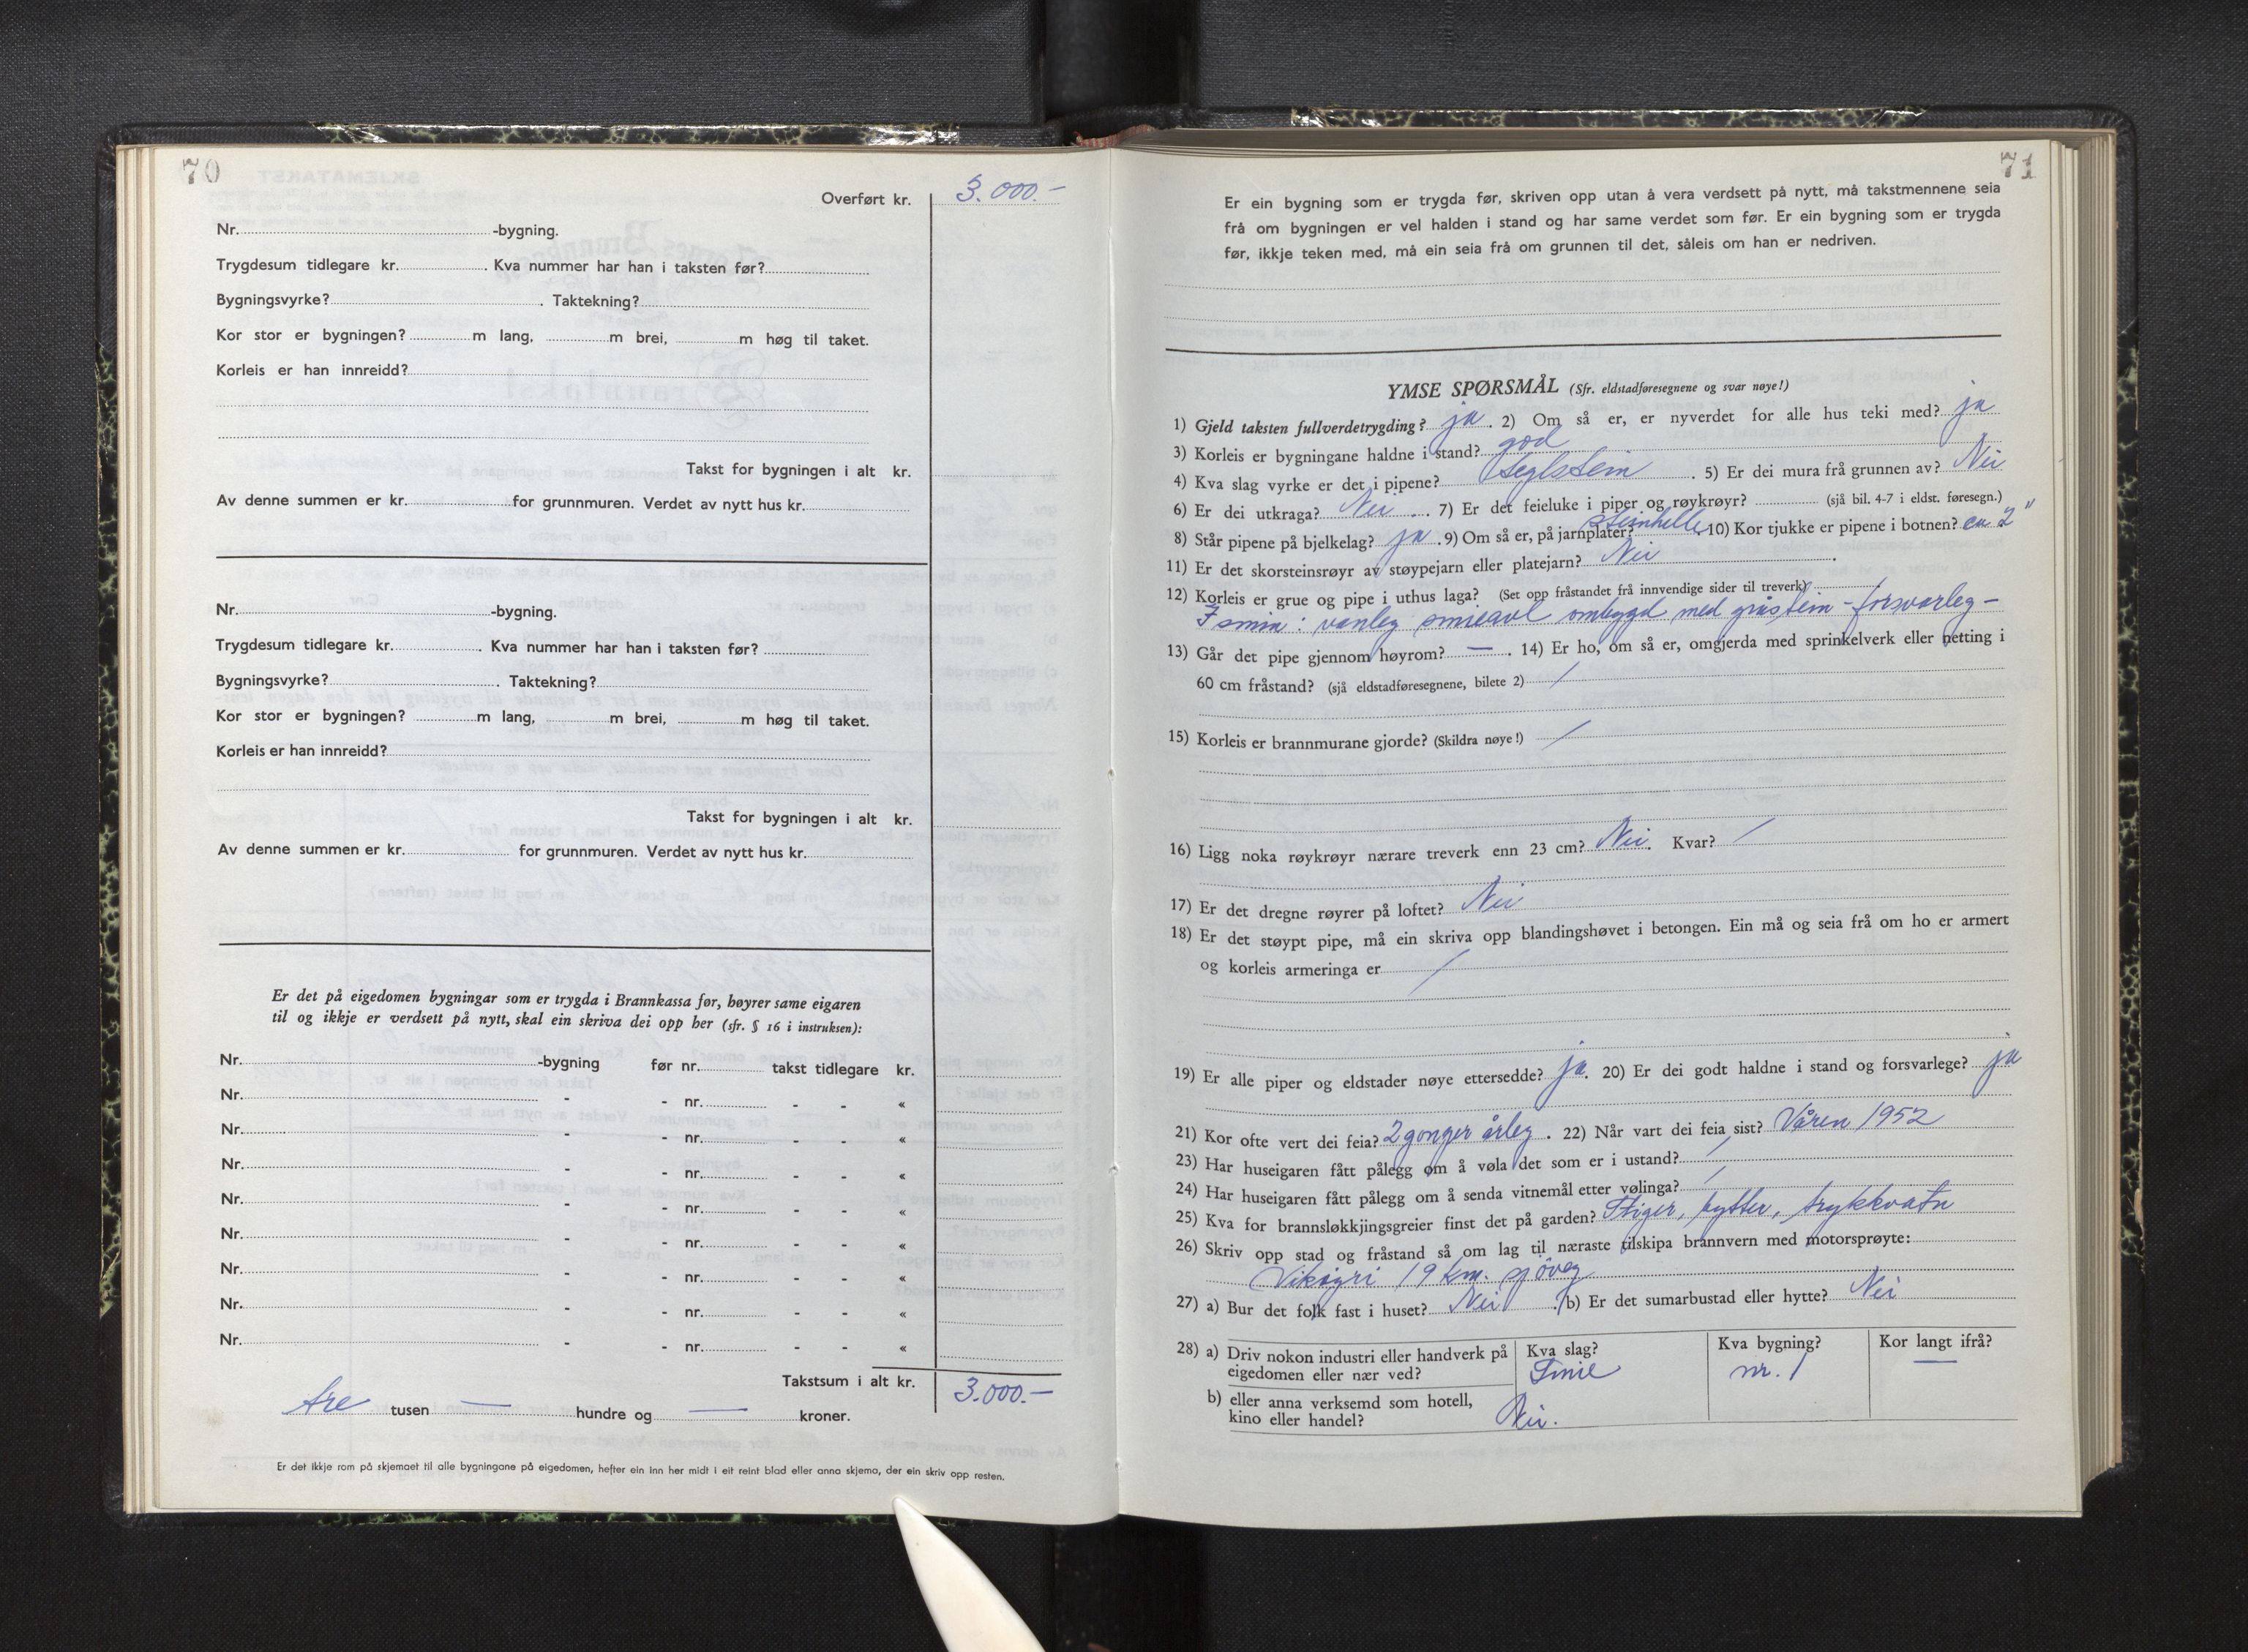 70
Overført kr. 3.000.-
Nr. -bygning.
Trygdesum tidlegare kr. . Kva nummer har han i taksten før?
Bygningsvyrke? . Taktekning?
Kor stor er bygningen? m lang, m brei, m høg til taket.
Korleis er han innreidd?
Takst for bygningen i alt kr.
Av denne summen er kr. for grunnmuren. Verdet av nytt hus kr.
Nr. -bygning.
Trygdesum tidlegare kr. . Kva nummer har han i taksten før?
Bygningsvyrke? . Taktekning?
Kor stor er bygningen? m lang, m brei, m høg til taket.
Korleis er han innreidd?
Takst for bygningen i alt kr.
Av denne summen er kr. for grunnmuren. Verdet av nytt hus kr.
Er det på eigedomen bygningar som er trygda i Brannkassa før, høyrer same eigaren
til og ikkje er verdsett på nytt, skal ein skriva dei opp her (sfr. § 16 i instruksen):
Nr. -bygning før nr. takst tidlegare kr.
Nr. - - nr. - - «
Nr. - - nr. - - «
Nr. - - nr. - - «
Nr. - - nr. - - «
Nr. - - nr. - - «
Nr. - - nr. - - «
Nr. - - nr. - - «
Nr. - - nr. - - «
Takstsum i alt kr. 3.000.-
tre tusen — hundre og — kroner.
Er det ikkje rom på skjemaet til alle bygningane på eigedomen, hefter ein inn her midt i eit reint blad eller anna skjema, der ein skriv opp resten.
71
Er ein bygning som er trygda før, skriven opp utan å vera verdsett på nytt, må takstmennene seia
frå om bygningen er vel halden i stand og har same verdet som før. Er ein bygning som er trygda
før, ikkje teken med, må ein seia frå om grunnen til det, såleis om han er nedriven.
YMSE SPØRSMÅL (Sfr. eldstadføresegnene og svar nøye!)
1) Gjeld taksten fullverdetrygding? ja. 2) Om så er, er nyverdet for alle hus teki med? ja
3) Korleis er bygningane haldne i stand? god
4) Kva slag vyrke er det i pipene? teglstein . 5) Er dei mura frå grunnen av? Nei
6) Er dei utkraga? Nei . 7) Er det feieluke i piper og røykrøyr? (sjå bil. 4-7 i eldst. føresegn.)
8) Står pipene på bjelkelag? ja . 9) Om så er, på jarnplater? steinhelle. 10) Kor tjukke er pipene i botnen? ca 2"
11) Er det skorsteinsrøyr av støypejarn eller platejarn? Nei .
12) Korleis er grue og pipe i uthus laga? (Set opp fråstandet frå innvendige sider til treverk)
I smia: vanleg smieavl ombygd med gråstein - forsvarleg -
13) Går det pipe gjennom høyrom? — . 14) Er ho, om så er, omgjerda med sprinkelverk eller netting i
60 cm fråstand? (sjå eldstadføresegnene, bilete 2) /
15) Korleis er brannmurane gjorde? (Skildra nøye!) /
16) Ligg noka røykrøyr nærare treverk enn 23 cm? Nei. Kvar? /
17) Er det dregne røyrer på loftet? Nei
18) Er det støypt pipe, må ein skriva opp blandingshøvet i betongen. Ein må og seia frå om ho er armert
og korleis armeringa er /
19) Er alle piper og eldstader nøye ettersedde? ja. 20) Er dei godt haldne i stand og forsvarlege? ja
21) Kor ofte vert dei feia? 2 gonger årleg . 22) Når vart dei feia sist? Våren 1952
23) Har huseigaren fått pålegg om å vøla det som er i ustand? /
24) Har huseigaren fått pålegg om å senda vitnemål etter vølinga? /
25) Kva for brannsløkkjingsgreier finst det på garden? Stiger, bytter, trykkvatn
26) Skriv opp stad og fråstand så om lag til næraste tilskipa brannvern med motorsprøyte:
Vikøyri 19 km. sjöveg
27) a) Bur det folk fast i huset? Nei . b) Er det sumarbustad eller hytte? Nei
28) a) Driv nokon industri eller handverk på Kva slag? Kva bygning? Kor langt ifrå?
eigedomen eller nær ved? Smie nr. 1 —
b) eller anna verksemd som hotell,
kino eller handel? Nei.